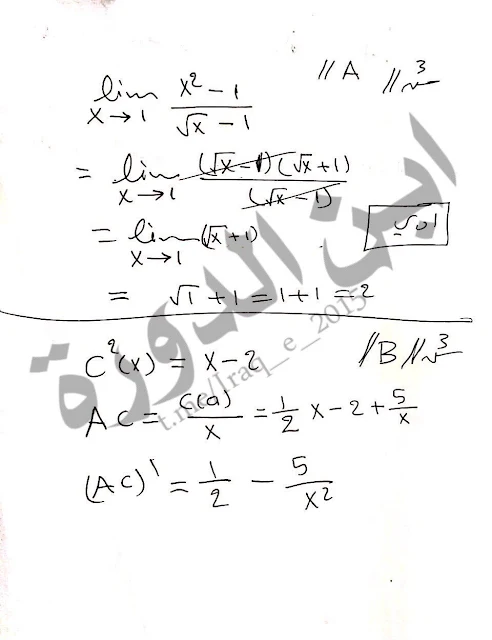 //A //س3
lim x→1 x² - 1 / √x - 1
= lim x→1 (√x - 1)(√x + 1) / (√x - 1)
= lim x→1 (√x + 1)
= √1 + 1 = 1 + 1 = 2
//B//س3
C²(x) = x - 2
AC = C(a) / x = 1/2 x - 2 + 5/x
(AC)' = 1/2 - 5/x²
ابن الدورة
t.me/Iraq_e_2015